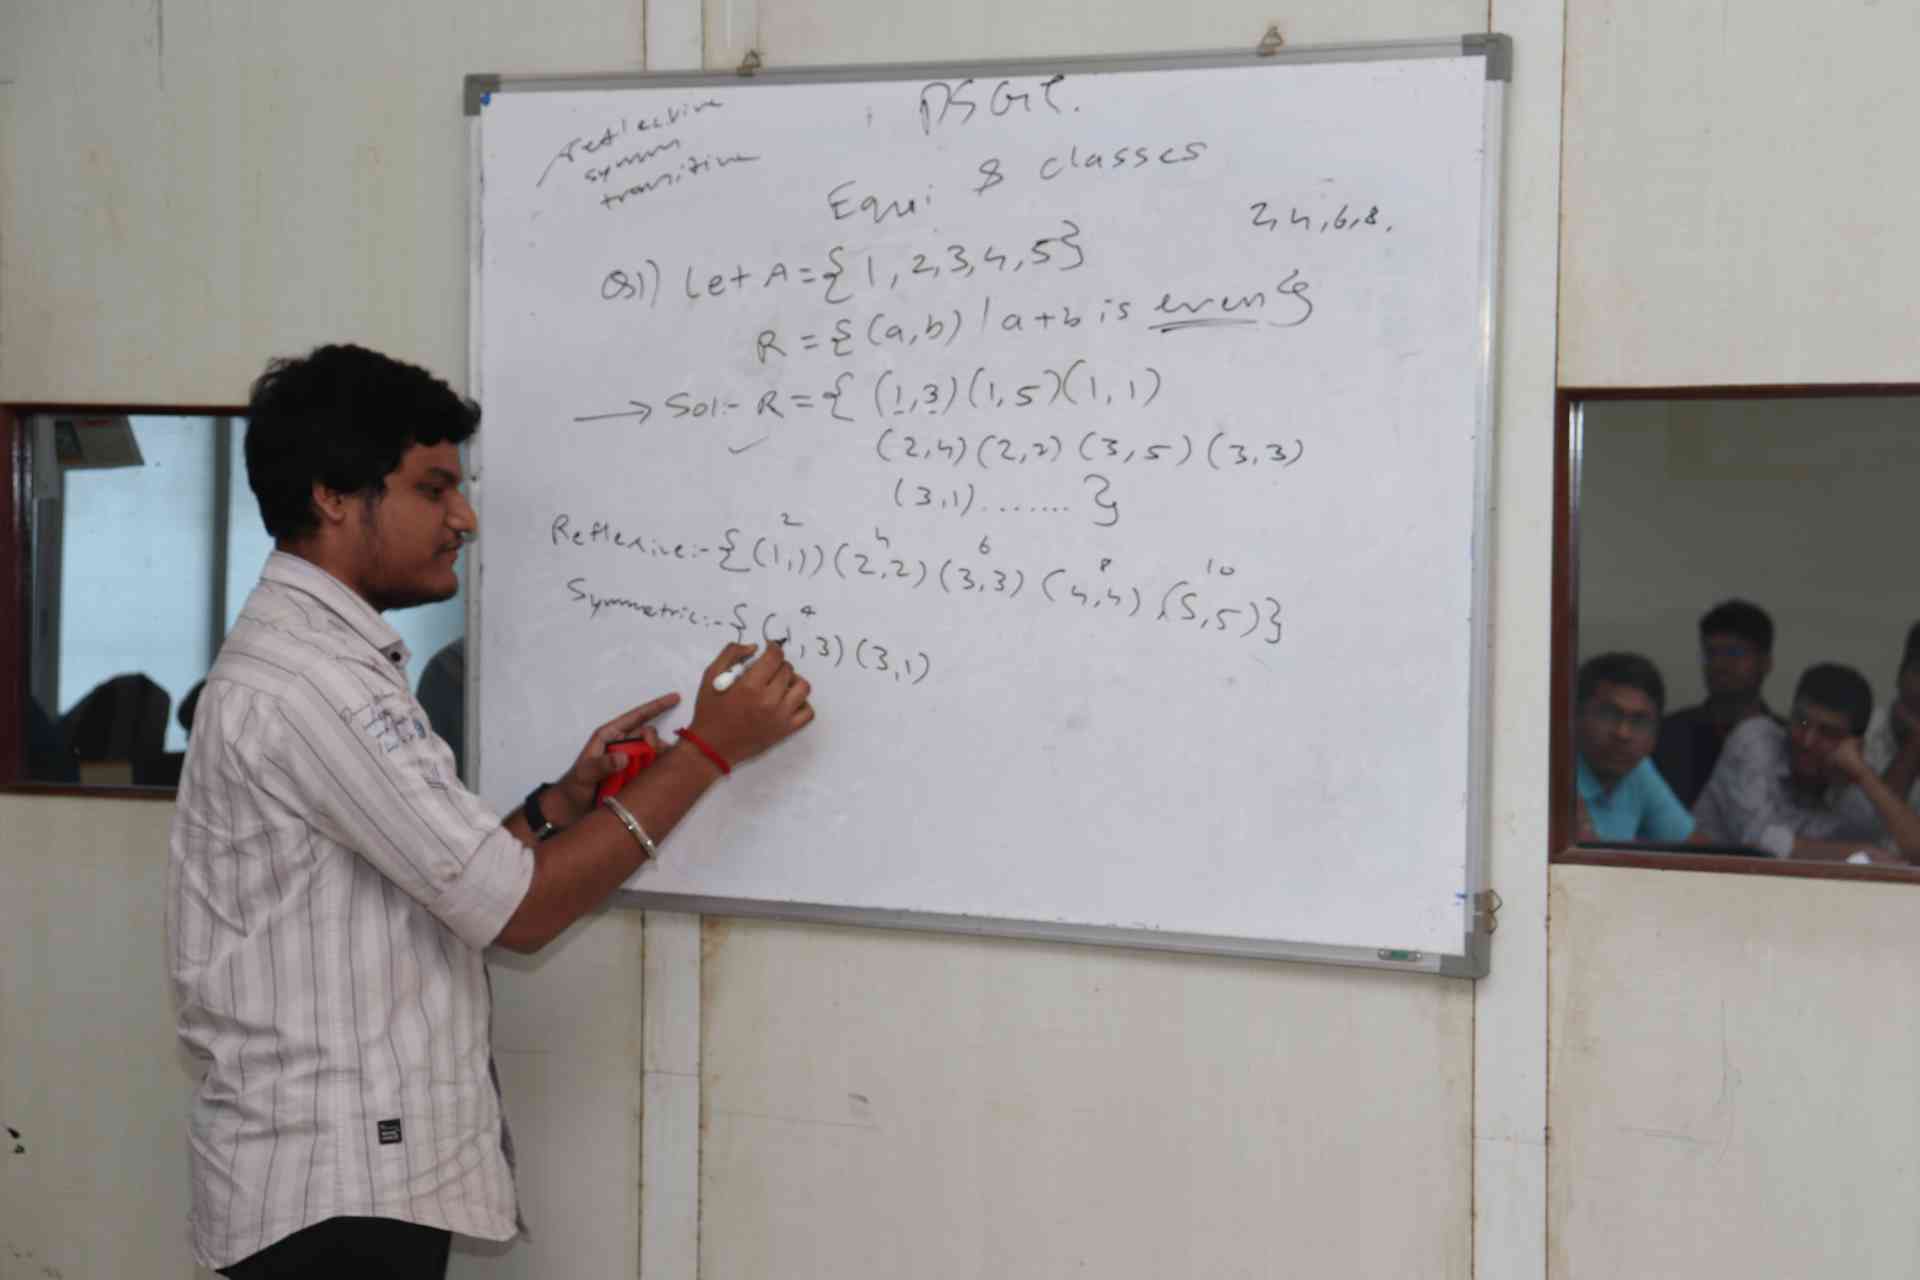 reflective
symm
transitive
DSGT.
Equi & classes
2, 4, 6, 8.
Q1) Let A = {1, 2, 3, 4, 5}
R = {(a,b) | a+b is even}
→ Sol:- R = { (1,3) (1,5) (1,1)
(2,4) (2,2) (3,5) (3,3)
(3,1) ....... }
2 4 6 8 10
Reflexive:- {(1,1) (2,2) (3,3) (4,4) (5,5)}
4
Symmetric:- { (1,3) (3,1)